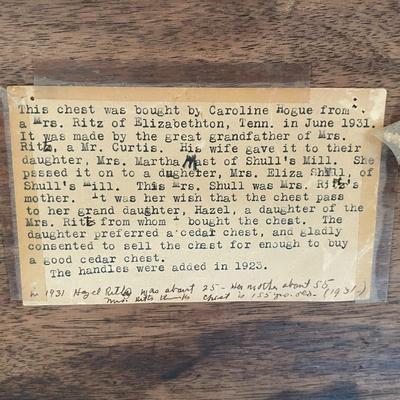 This chest was bought by Caroline Hogue from
a Mrs. Ritz of Elizabethton, Tenn. in June 1931.
It was made by the great grandfather of Mrs.
Ritz, a Mr. Curtis. His wife gave it to their
daughter, Mrs. Martha Mast of Shull's Mill. She
passed it on to a dugherer, Mrs. Eliza Shull, of
Shull's Mill. This Mrs. Shull was Mrs. Ritz's
mother. It was her wish that the chest pass
to her grand daughter, Hazel, a daughter of the
Mrs. Ritz from whom I bought the chest. The
daughter preferred a cedar chest, and gladly
consented to sell the chest for enough to buy
a good cedar chest.
The handles were added in 1923.
In 1931 Hazel Ritz was about 25 - Her mother about 55
Mrs. Ritz thinks chest is 155 yrs. old. (1931-)